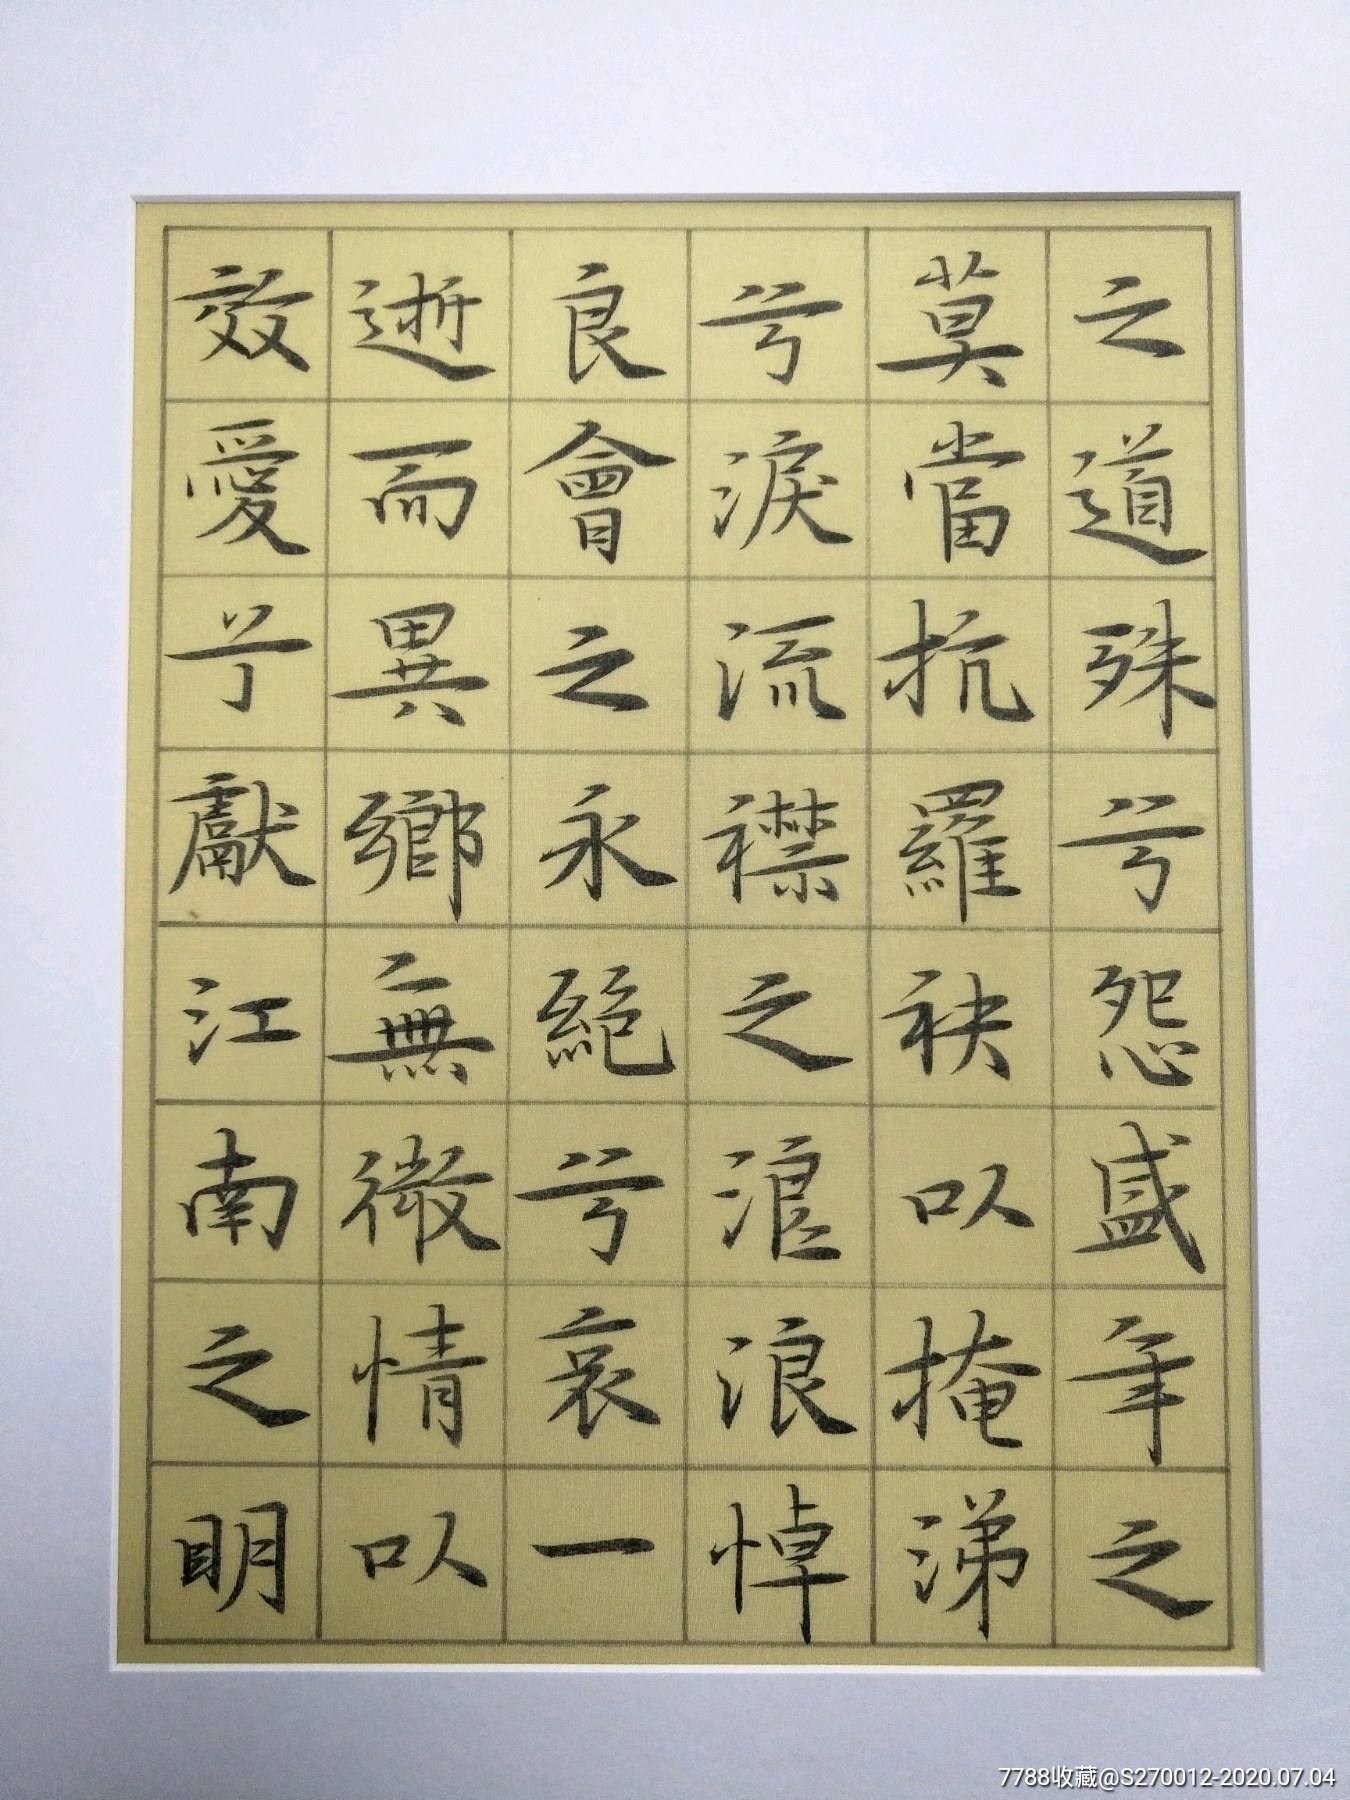 之道殊兮怨盛年之
莫當抗羅袂以掩涕
兮淚流襟之浪浪悼
良會之永絕兮哀一
逝而異鄉無微情以
效愛兮獻江南之明
7788收藏@S270012-2020.07.04